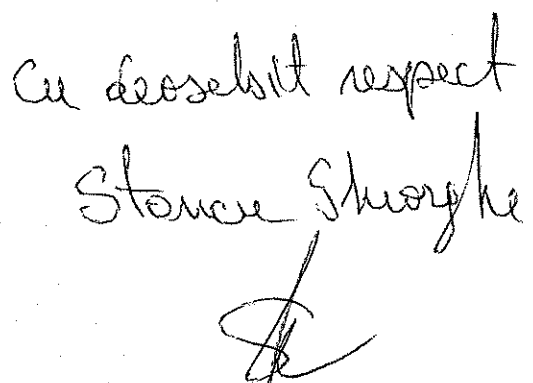 Cu deosebit respect
Stancu Gheorghe